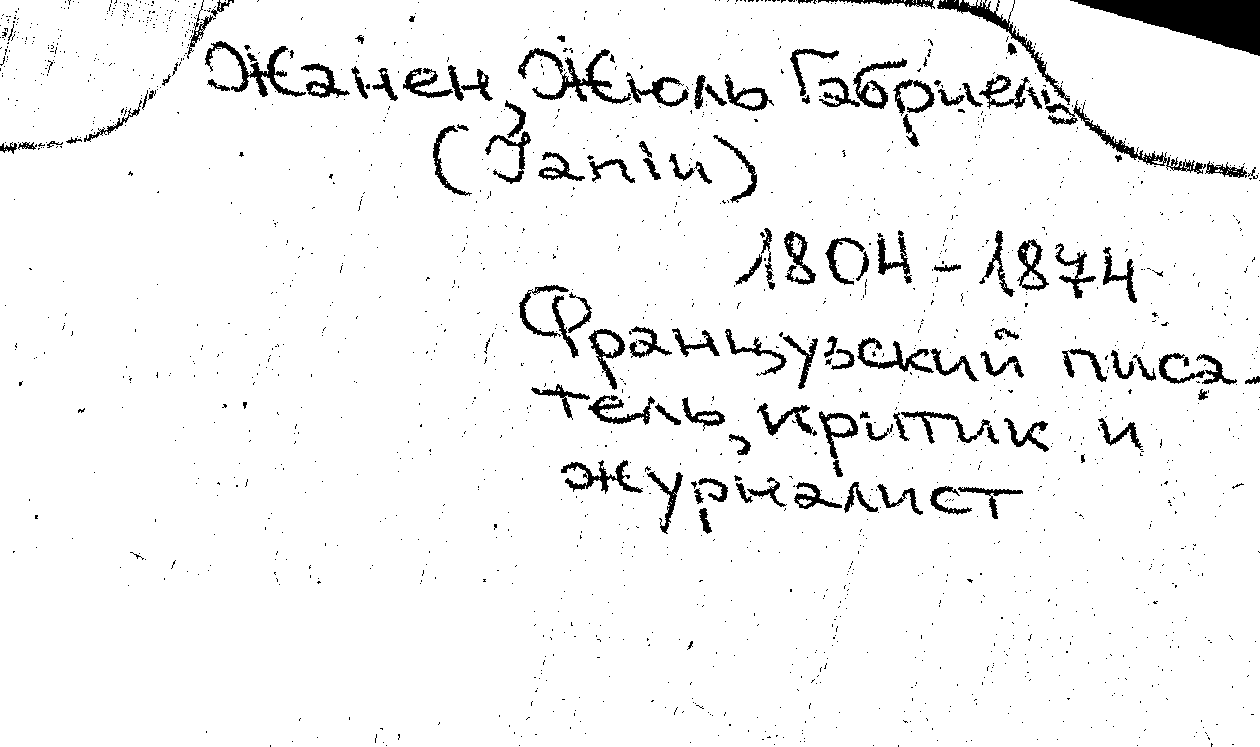 Жанен, Жюль Габриель
(Janin)
1804-1874
Французский писа-
тель, критик и
журналист